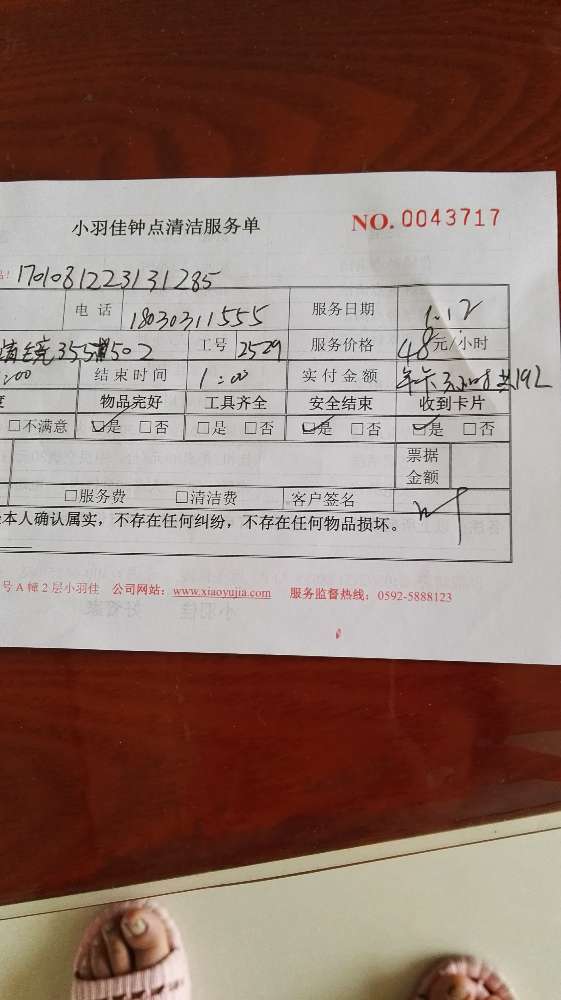 小羽佳钟点清洁服务单 NO. 0043717
170108122313 1285
电 话 18030311555 服务日期 1.12
355 502 工号 2529 服务价格 48元/小时
:00 结束时间 1:00 实付金额 年卡 共192
度 物品完好 工具齐全 安全结束 收到卡片
□不满意 ☑是 □否 □是 □否 ☑是 □否 ☑是 □否
票据金额
□服务费 □清洁费 客户签名
本人确认属实，不存在任何纠纷，不存在任何物品损坏。
号A幢2层小羽佳 公司网站：www.xiaoyujia.com 服务监督热线：0592-5888123